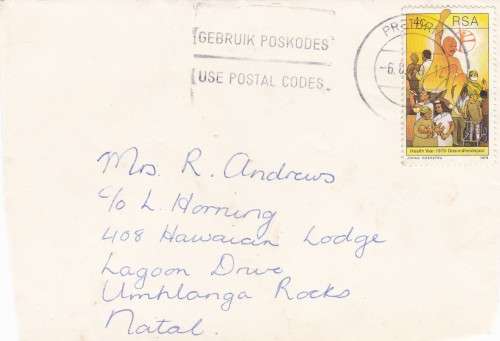 GEBRUIK POSKODES
USE POSTAL CODES
4c RSA
Health Year 1979 Gesondheidsjaar
1979
Mrs R. Andrews
c/o L. Horning
408 Hawaiian Lodge
Lagoon Drive
Umhlanga Rocks
Natal.